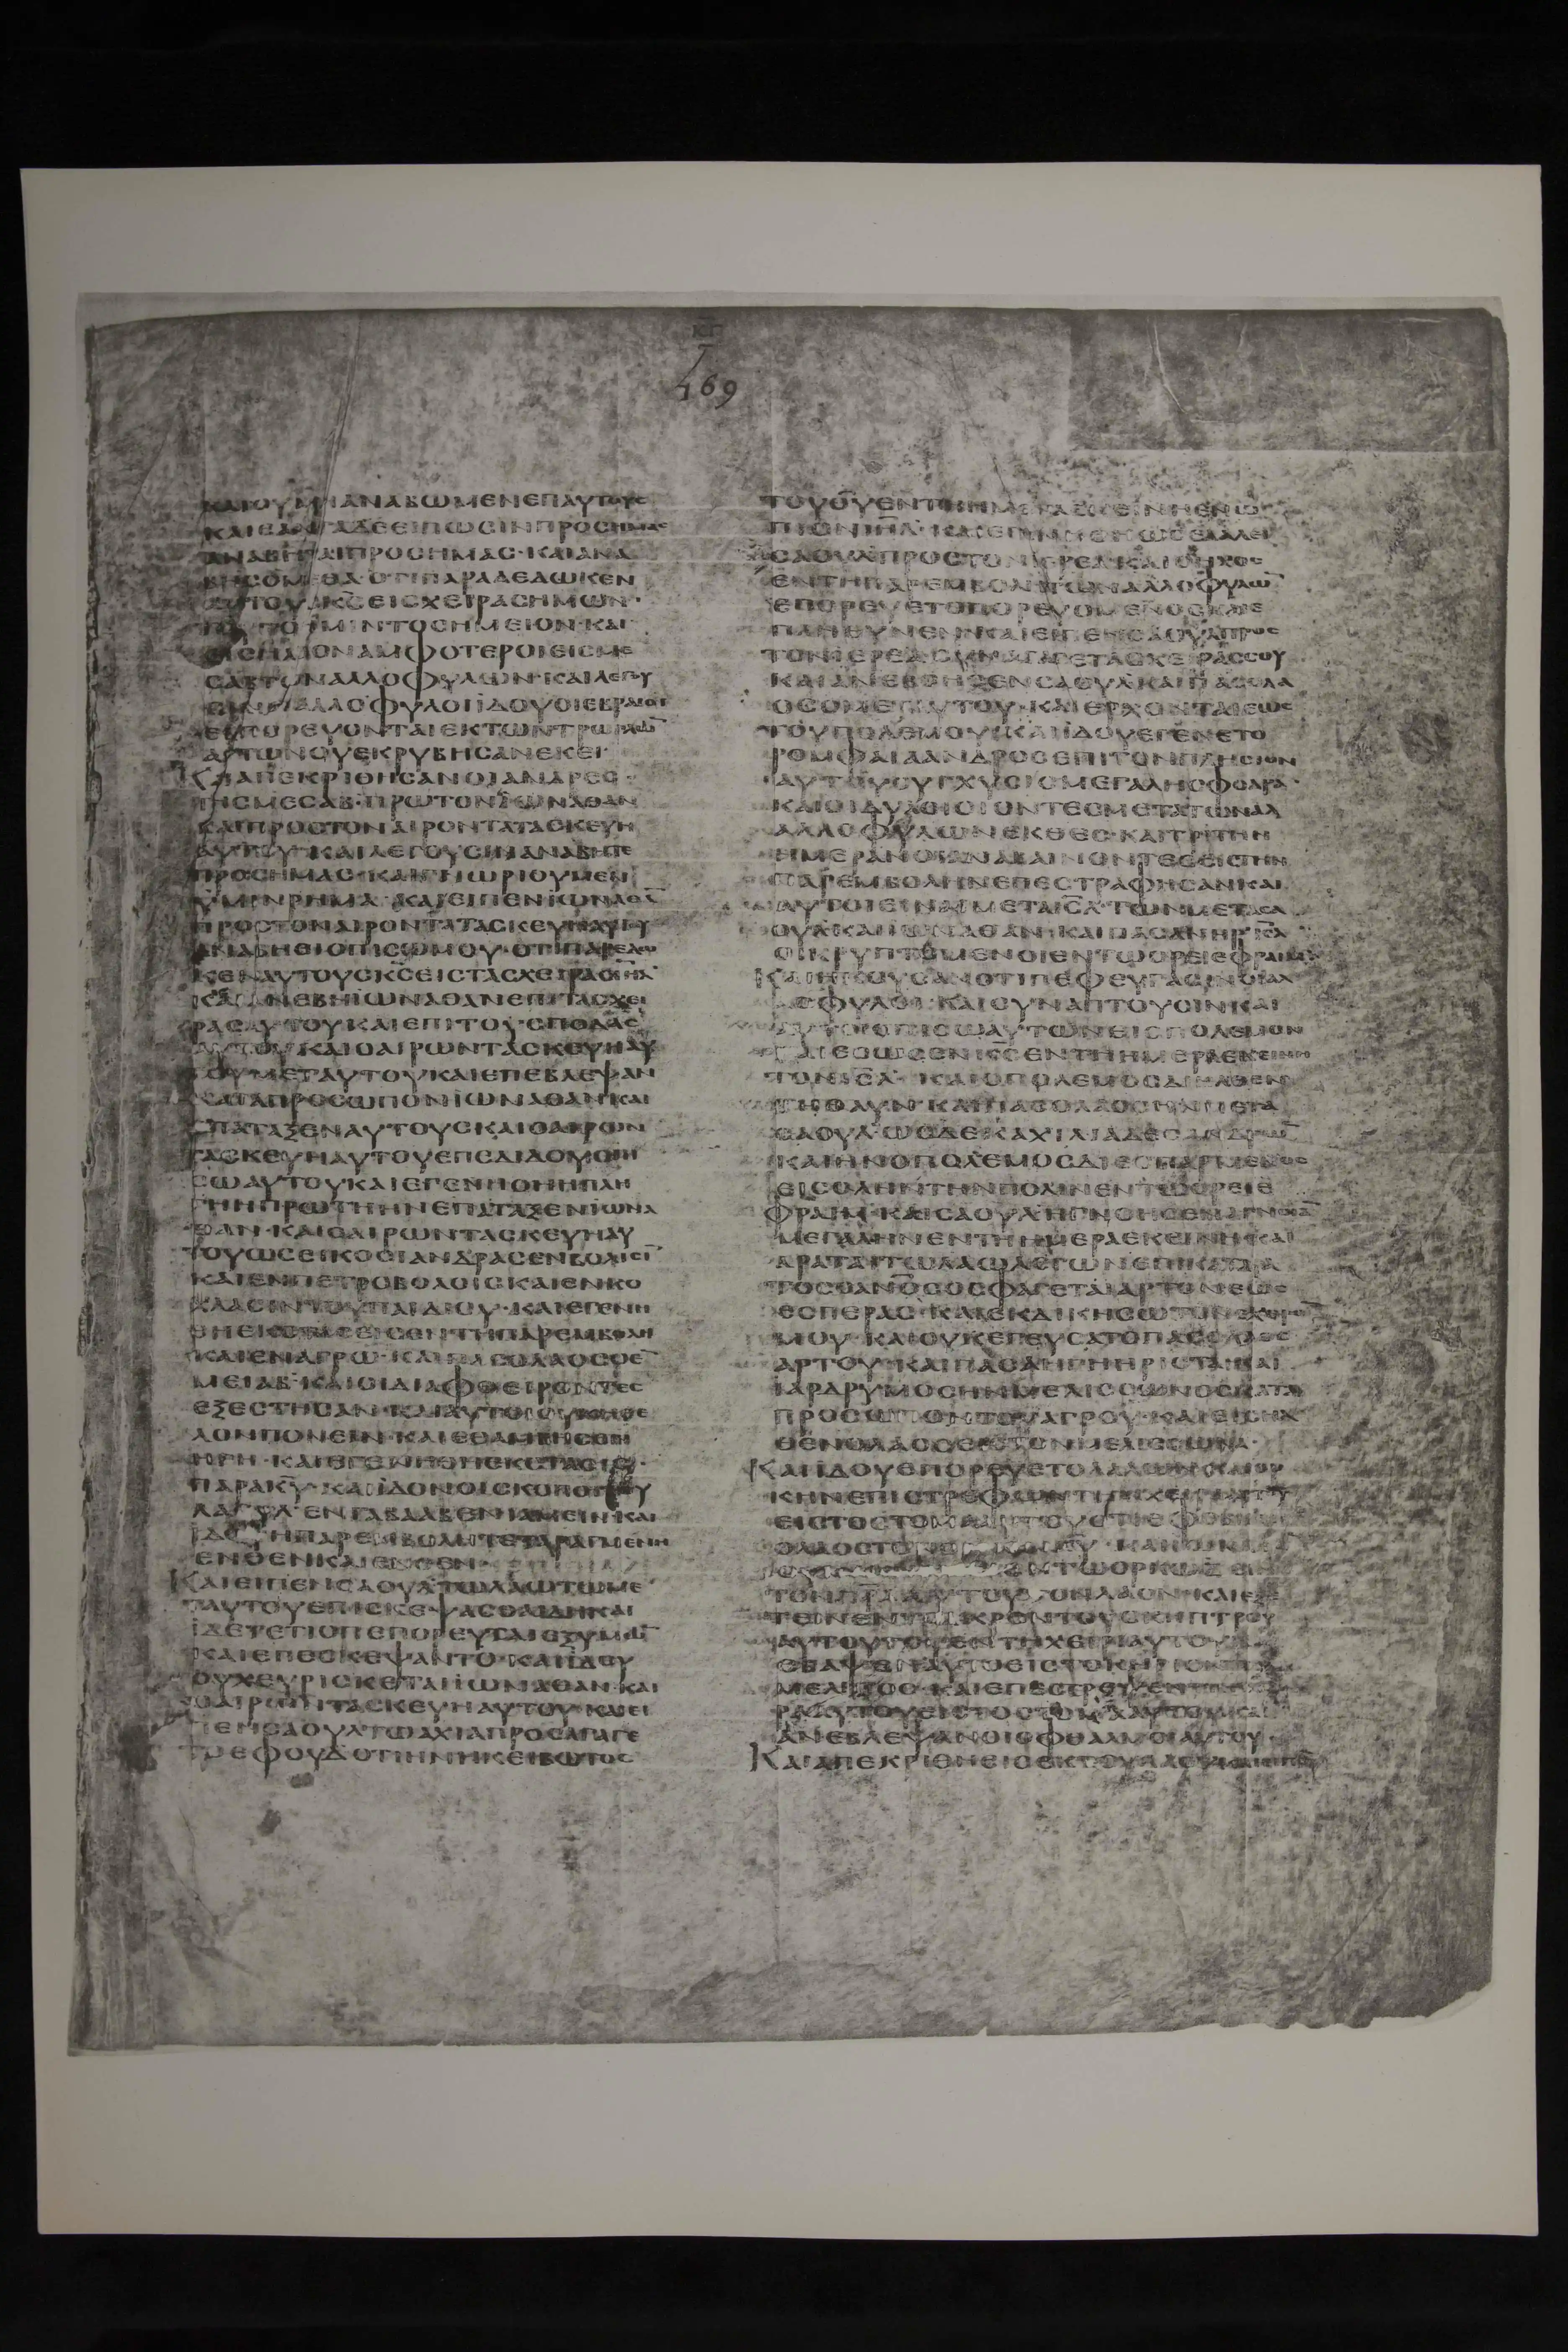 ΚΓ
169
ΚΑΙΟΥΜΗΑΝΑΒΩΜΕΝΕΠΑΥΤΟΥΣ
ΚΑΙΕΑΝΤΑΔΕΕΙΠΩΣΙΝΠΡΟΣΗΜΑΣ
ΑΝΑΒΗΤΑΙΠΡΟΣΗΜΑΣ·ΚΑΙΑΝΑ
ΒΗΣΟΜΕΘΑ·ΟΤΙΠΑΡΑΔΕΔΩΚΕΝ
ΑΥΤΟΥΣΚ̅Σ̅ΕΙΣΧΕΙΡΑΣΗΜΩΝ·
ΤΟΥΤΟΗΜΙΝΤΟΣΗΜΕΙΟΝ·ΚΑΙ
ΕΙΣΗΛΘΟΝΑΜΦΟΤΕΡΟΙΕΙΣΜΕ
ΣΑΒΤΩΝΑΛΛΟΦΥΛΩΝ·ΚΑΙΛΕΓΟΥ
ΣΙΝΟΙΑΛΛΟΦΥΛΟΙΙΔΟΥΟΙΕΒΡΑΙΟΙ
ΕΚΠΟΡΕΥΟΝΤΑΙΕΚΤΩΝΤΡΩΓΛΩ̅
ΑΥΤΩΝΟΥΕΚΡΥΒΗΣΑΝΕΚΕΙ·
ΚΑΙΑΠΕΚΡΙΘΗΣΑΝΟΙΑΝΔΡΕΣ
ΤΗΣΜΕΣΑΒ·ΠΡΩΤΟΝΙΩΝΑΘΑΝ
ΚΑΙΠΡΟΣΤΟΝΑΙΡΟΝΤΑΤΑΣΚΕΥΗ
ΑΥΤΟΥ·ΚΑΙΛΕΓΟΥΣΙΝΑΝΑΒΗΤΕ
ΠΡΟΣΗΜΑΣ·ΚΑΙΓΝΩΡΙΟΥΜΕΝ
ΥΜΙΝΡΗΜΑ·ΚΑΙΕΙΠΕΝΙΩΝΑΘΑ̅
ΠΡΟΣΤΟΝΑΙΡΟΝΤΑΤΑΣΚΕΥΗΑΥΤΟΥ
ΑΝΑΒΗΘΙΟΠΙΣΩΜΟΥ·ΟΤΙΠΑΡΕΔΩ
ΚΕΝΑΥΤΟΥΣΚ̅Σ̅ΕΙΣΤΑΣΧΕΙΡΑΣΙΗ̅Λ̅
ΚΑΙΑΝΕΒΗΙΩΝΑΘΑΝΕΠΙΤΑΣΧΕΙ
ΡΑΣΑΥΤΟΥΚΑΙΕΠΙΤΟΥΣΠΟΔΑΣ
ΑΥΤΟΥΚΑΙΟΑΙΡΩΝΤΑΣΚΕΥΗΑΥ
ΤΟΥΜΕΤΑΥΤΟΥΚΑΙΕΠΕΒΛΕΨΑΝ
ΚΑΤΑΠΡΟΣΩΠΟΝΙΩΝΑΘΑΝ·ΚΑΙ
ΕΠΑΤΑΞΕΝΑΥΤΟΥΣΚΑΙΟΑΙΡΩΝ
ΤΑΣΚΕΥΗΑΥΤΟΥΕΠΕΔΙΔΟΥΟΠΙ
ΣΩΑΥΤΟΥΚΑΙΕΓΕΝΗΘΗΗΠΛΗ
ΓΗΗΠΡΩΤΗΗΝΕΠΑΤΑΞΕΝΙΩΝΑ
ΘΑΝ·ΚΑΙΟΑΙΡΩΝΤΑΣΚΕΥΗΑΥ
ΤΟΥΩΣΕΙΚΟΣΙΑΝΔΡΑΣΕΝΒΟΛΙΣΙ̅
ΚΑΙΕΝΠΕΤΡΟΒΟΛΟΙΣΚΑΙΕΝΚΟ
ΧΛΑΞΙΝΤΟΥΠΑΙΔΙΟΥ·ΚΑΙΕΓΕΝΗ
ΘΗΕΚΣΤΑΣΕΙΣΕΝΤΗΠΑΡΕΜΒΟΛΗ
ΚΑΙΕΝΑΓΡΩ·ΚΑΙΠΑΣΟΛΑΟΣΟΕ̅
ΜΕΙΑΒ·ΚΑΙΟΙΔΙΑΦΘΕΙΡΟΝΤΕΣ
ΕΞΕΣΤΗΣΑΝ·ΚΑΙΑΥΤΟΙΟΥΚΗΘΕ
ΛΟΝΠΟΝΕΙΝ·ΚΑΙΕΘΑΜΒΗΣΕΝΗ
ΗΓΗ·ΚΑΙΕΓΕΝΗΘΗΕΚΣΤΑΣΙΣ·
ΠΑΡΑΚ̅Υ̅·ΚΑΙΙΔΟΝΟΙΣΚΟΠΟΙΤΟΥ
ΣΑΟΥΛ·ΕΝΓΑΒΑΑΒΕΝΙΑΜΕΙΝ·ΚΑΙ
ΙΔΟΥΗΠΑΡΕΜΒΟΛΗΤΕΤΑΡΑΓΜΕΝΗ
ΕΝΘΕΝΚΑΙΕΝΘΕΝ·
ΚΑΙΕΙΠΕΝΣΑΟΥΛΤΩΛΑΩΤΩΜΕ
ΤΑΥΤΟΥΕΠΙΣΚΕΨΑΣΘΑΙΔΗΚΑΙ
ΙΔΕΤΕΤΙΣΠΕΠΟΡΕΥΤΑΙΕΞΥΜΩ̅
ΚΑΙΕΠΕΣΚΕΨΑΝΤΟ·ΚΑΙΙΔΟΥ
ΟΥΧΕΥΡΙΣΚΕΤΑΙΙΩΝΑΘΑΝ·ΚΑΙ
ΟΑΙΡΩΝΤΑΣΚΕΥΗΑΥΤΟΥ·ΚΑΙΕΙ
ΠΕΝΣΑΟΥΛΤΩΑΧΙΑΠΡΟΣΑΓΑΓΕ
ΤΟΕΦΟΥΔΟΤΙΗΝΗΚΕΙΒΩΤΟΣ
ΤΟΥΘ̅Υ̅ΕΝΤΗΗΜΕΡΑΕΚΕΙΝΗΕΝΩ
ΠΙΟΝΙΗ̅Λ̅·ΚΑΙΕΓΕΝΗΘΗΩΣΕΛΑΛΕΙ
ΣΑΟΥΛΠΡΟΣΤΟΝΙΕΡΕΑ·ΚΑΙΟΗΧΟΣ
ΕΝΤΗΠΑΡΕΜΒΟΛΗΤΩΝΑΛΛΟΦΥΛΩ̅
ΕΠΟΡΕΥΕΤΟΠΟΡΕΥΟΜΕΝΟΣΚΑΙΕ
ΠΛΗΘΥΝΕΝ·ΚΑΙΕΙΠΕΝΣΑΟΥΛΠΡΟΣ
ΤΟΝΙΕΡΕΑΣΥΝΑΓΑΓΕΤΑΣΧΕΙΡΑΣΣΟΥ
ΚΑΙΑΝΕΒΟΗΣΕΝΣΑΟΥΛΚΑΙΠΑΣΟΛΑ
ΟΣΟΜΕΤΑΥΤΟΥ·ΚΑΙΕΡΧΟΝΤΑΙΕΩΣ
ΤΟΥΠΟΛΕΜΟΥ·ΚΑΙΙΔΟΥΕΓΕΝΕΤΟ
ΡΟΜΦΑΙΑΑΝΔΡΟΣΕΠΙΤΟΝΠΛΗΣΙΟΝ
ΑΥΤΟΥΣΥΓΧΥΣΙΣΜΕΓΑΛΗΣΦΟΔΡΑ·
ΚΑΙΟΙΔΟΥΛΟΙΟΙΟΝΤΕΣΜΕΤΑΤΩΝΑΛ
ΑΛΛΟΦΥΛΩΝΕΚΘΕΣ·ΚΑΙΤΡΙΤΗΝ
ΗΜΕΡΑΝΟΙΑΝΑΒΑΙΝΟΝΤΕΣΕΙΣΤΗΝ
ΠΑΡΕΜΒΟΛΗΝΕΠΕΣΤΡΑΦΗΣΑΝΚΑΙ
ΑΥΤΟΙΕΙΝΑΙΜΕΤΑΙΣ̅Λ̅·ΤΩΝΜΕΤΑΣΑ
ΟΥΛΚΑΙΙΩΝΑΘΑΝ·ΚΑΙΠΑΣΑΝΗΡΙΣ̅Λ̅
ΟΙΚΡΥΠΤΟΜΕΝΟΙΕΝΤΩΟΡΕΙΕΦΡΑΙΜ
ΚΑΙΗΚΟΥΣΑΝΟΤΙΠΕΦΕΥΓΑΣΙΝΟΙΑΛ
ΛΟΦΥΛΟΙ·ΚΑΙΣΥΝΑΠΤΟΥΣΙΝΚΑΙ
ΑΥΤΟΙΟΠΙΣΩΑΥΤΩΝΕΙΣΠΟΛΕΜΟΝ
ΚΑΙΕΣΩΣΕΝΚ̅Σ̅ΕΝΤΗΗΜΕΡΑΕΚΕΙΝΗ
ΤΟΝΙΣ̅Λ̅·ΚΑΙΟΠΟΛΕΜΟΣΔΙΗΛΘΕΝ
ΤΗΘΑΥΝ·ΚΑΙΠΑΣΟΛΑΟΣΗΝΜΕΤΑ
ΣΑΟΥΛ·ΩΣΔΕΚΑΧΙΛΙΑΔΕΣΑΝΔΡΩ̅
ΚΑΙΗΝΟΠΟΛΕΜΟΣΔΙΕΣΠΑΡΜΕΝΟΣ
ΕΙΣΟΛΗΝΤΗΝΠΟΛΙΝΕΝΤΩΟΡΕΙΕ
ΦΡΑΙΜ·ΚΑΙΣΑΟΥΛΗΓΝΟΗΣΕΝΑΓΝΟΙΑ̅
ΜΕΓΑΛΗΝΕΝΤΗΗΜΕΡΑΕΚΕΙΝΗΚΑΙ
ΑΡΑΤΑΙΤΩΛΑΩΛΕΓΩΝΕΠΙΚΑΤΑΡΑ
ΤΟΣΟΑΝ̅Ο̅Σ̅ΟΣΦΑΓΕΤΑΙΑΡΤΟΝΕΩΣ
ΕΣΠΕΡΑΣ·ΚΑΙΕΚΔΙΚΗΣΩΤΟΝΕΧΘΡΟ̅
ΜΟΥ·ΚΑΙΟΥΚΕΓΕΥΣΑΤΟΠΑΣΟΛΑΟΣ
ΑΡΤΟΥ·ΚΑΙΠΑΣΑΗΓΗΗΡΙΣΤΑ·ΚΑΙ
ΙΑΡΔΡΥΜΟΣΗΝΜΕΛΙΣΣΩΝΟΣΚΑΤΑ
ΠΡΟΣΩΠΟΝΤΟΥΑΓΡΟΥ·ΚΑΙΕΙΣΗΛ
ΘΕΝΟΛΑΟΣΕΙΣΤΟΝΜΕΛΙΣΣΩΝΑ·
ΚΑΙΙΔΟΥΕΠΟΡΕΥΕΤΟΛΑΛΩΝ·ΚΑΙΟΥ
ΚΗΝΕΠΙΣΤΡΕΦΩΝΤΗΝΧΕΙΡΑΑΥΤΟΥ
ΕΙΣΤΟΣΤΟΜΑΑΥΤΟΥΟΤΙΕΦΟΒΗΘΗ
ΟΛΑΟΣΤΟΝΟΡΚΟΝΚ̅Υ̅·ΚΑΙΙΩΝΑ
ΤΟΝΠ̅Ρ̅Α̅ΑΥΤΟΥΤΟΝΛΑΟΝ·ΚΑΙΕΞΕ
ΤΕΙΝΕΝΤΟΑΚΡΟΝΤΟΥΣΚΗΠΤΡΟΥ
ΑΥΤΟΥΤΟΕΝΤΗΧΕΙΡΙΑΥΤΟΥ
ΕΒΑΨΕΝΑΥΤΟΕΙΣΤΟΚΗΡΙΟΝΤΟΥ
ΜΕΛΙΤΟΣ·ΚΑΙΕΠΕΣΤΡΕΨΕΝ
ΡΑΑΥΤΟΥΕΙΣΤΟΣΤΟΜΑΑΥΤΟΥΚΑΙ
ΑΝΕΒΛΕΨΑΝΟΙΟΦΘΑΛΜΟΙΑΥΤΟΥ·
ΚΑΙΑΠΕΚΡΙΘΗΕΙΣΕΚΤΟΥΛΑΟΥΚΑΙΕΙΠΕ̅